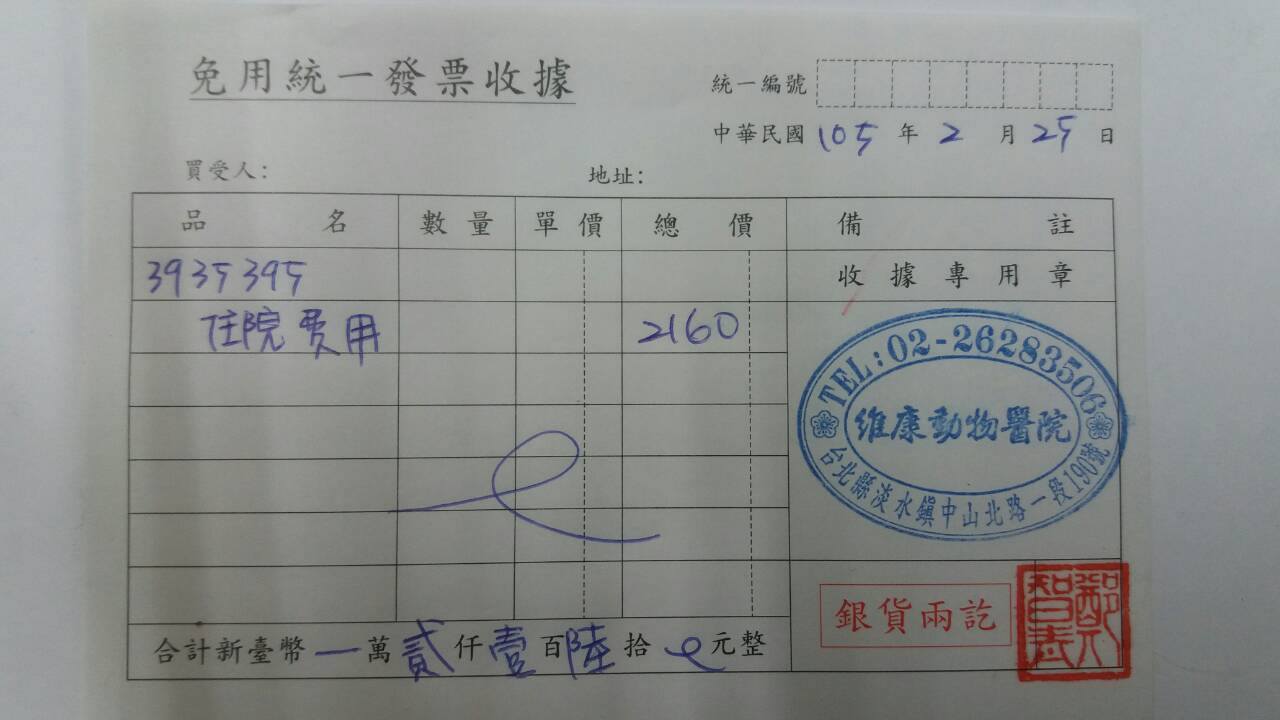 免用統一發票收據
統一編號
中華民國 105 年 2 月 25 日
買受人： 地址：
品名 數量 單價 總價 備註
3935395 收據專用章
住院費用 2160
TEL：02-26283506
維康動物醫院
台北縣淡水鎮中山北路一段190號
銀貨兩訖
合計新臺幣 一 萬 貳 仟 壹 百 陸 拾 元整